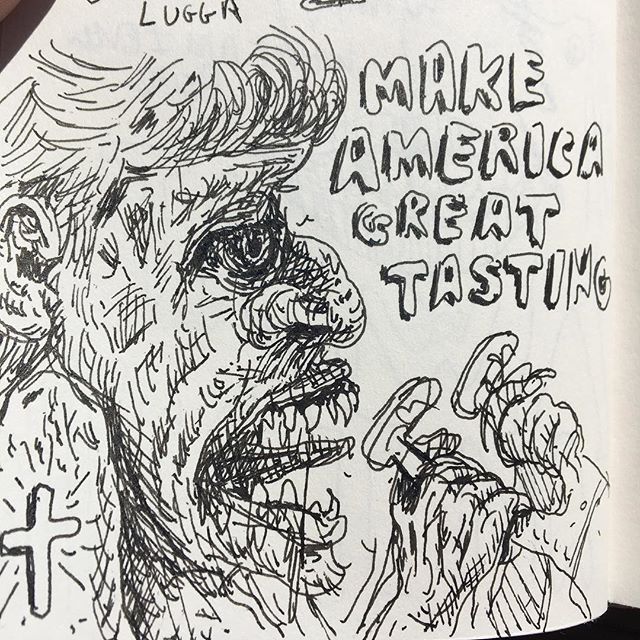 LUGGA
MAKE
AMERICA
GREAT
TASTING